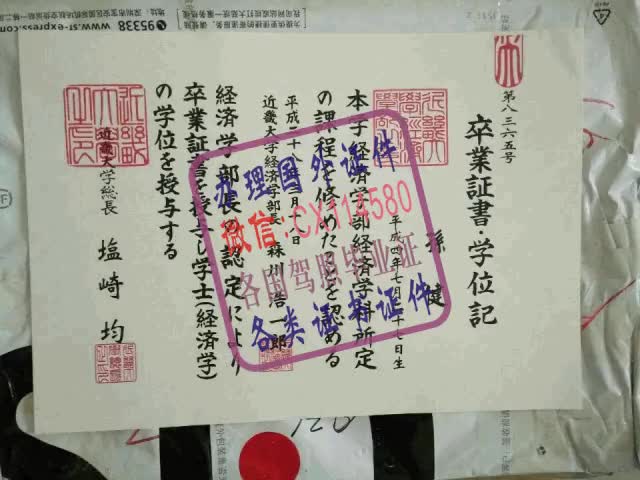 卒業証書・学位記
第八三六五号
孫 健
平成四年七月 十七日生
本学経済学部経済学科所定
の課程を修めたことを認める
平成二十八 三月 日
近畿大学経済学部長 森川 浩一郎
経済学部長の認定により
卒業証書を授与し学士(経済学)
の学位を授与する
近畿大学総長 塩崎 均
办理国外证件
微信:CX114580
各国驾照毕业证
各类证书证件
95338 www.sf-express.com